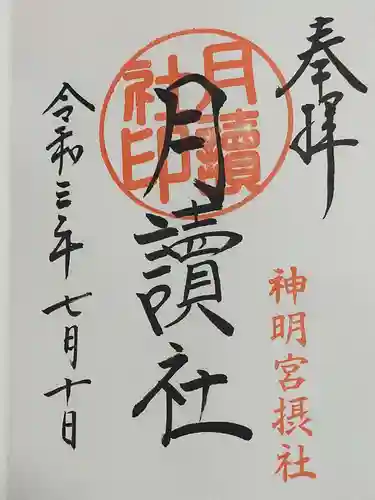 奉拝
神明宮摂社
月讀社
月讀社印
令和三年七月十日